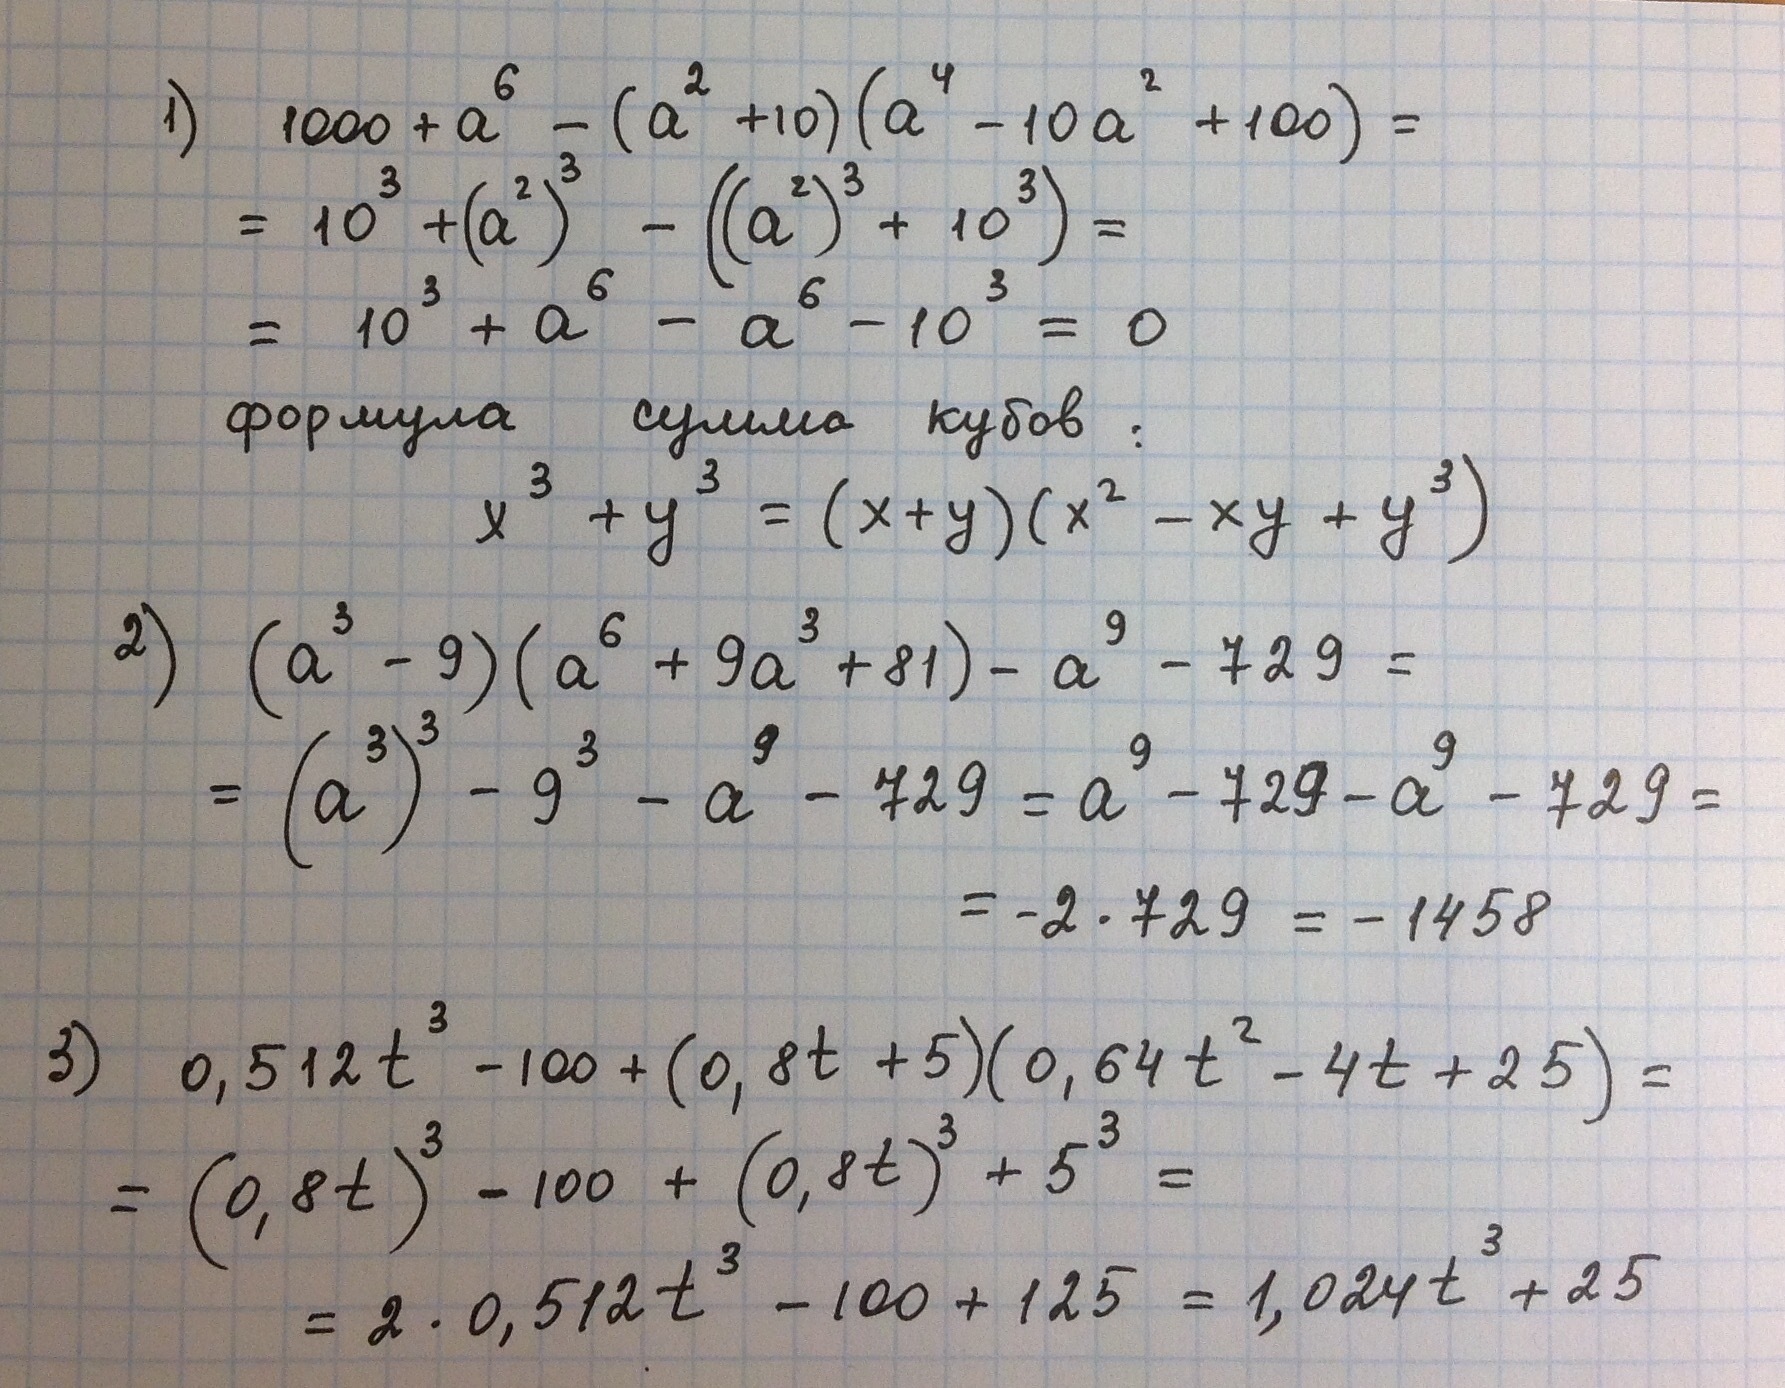 1) 1000 + a⁶ − (a² + 10)(a⁴ − 10a² + 100) =
= 10³ + (a²)³ − ((a²)³ + 10³) =
= 10³ + a⁶ − a⁶ − 10³ = 0
формула сумма кубов :
x³ + y³ = (x + y)(x² − xy + y³)
2) (a³ − 9)(a⁶ + 9a³ + 81) − a⁹ − 729 =
= (a³)³ − 9³ − a⁹ − 729 = a⁹ − 729 − a⁹ − 729 =
= −2 · 729 = −1458
3) 0,512t³ − 100 + (0,8t + 5)(0,64t² − 4t + 25) =
= (0,8t)³ − 100 + (0,8t)³ + 5³ =
= 2 · 0,512t³ − 100 + 125 = 1,024t³ + 25